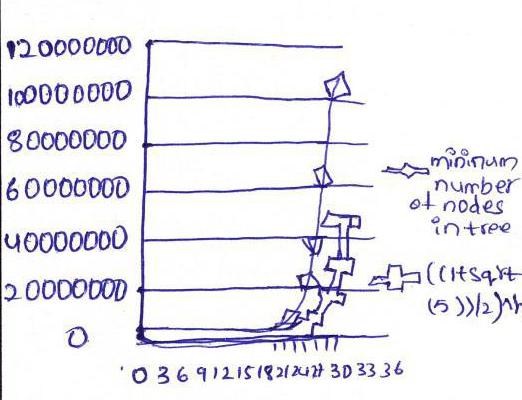 120000000
100000000
80000000
60000000
40000000
20000000
0
0 3 6 9 12 15 18 21 24 27 30 33 36
mininum
number
of nodes
in tree
((1+sqrt
(5))/2)^h